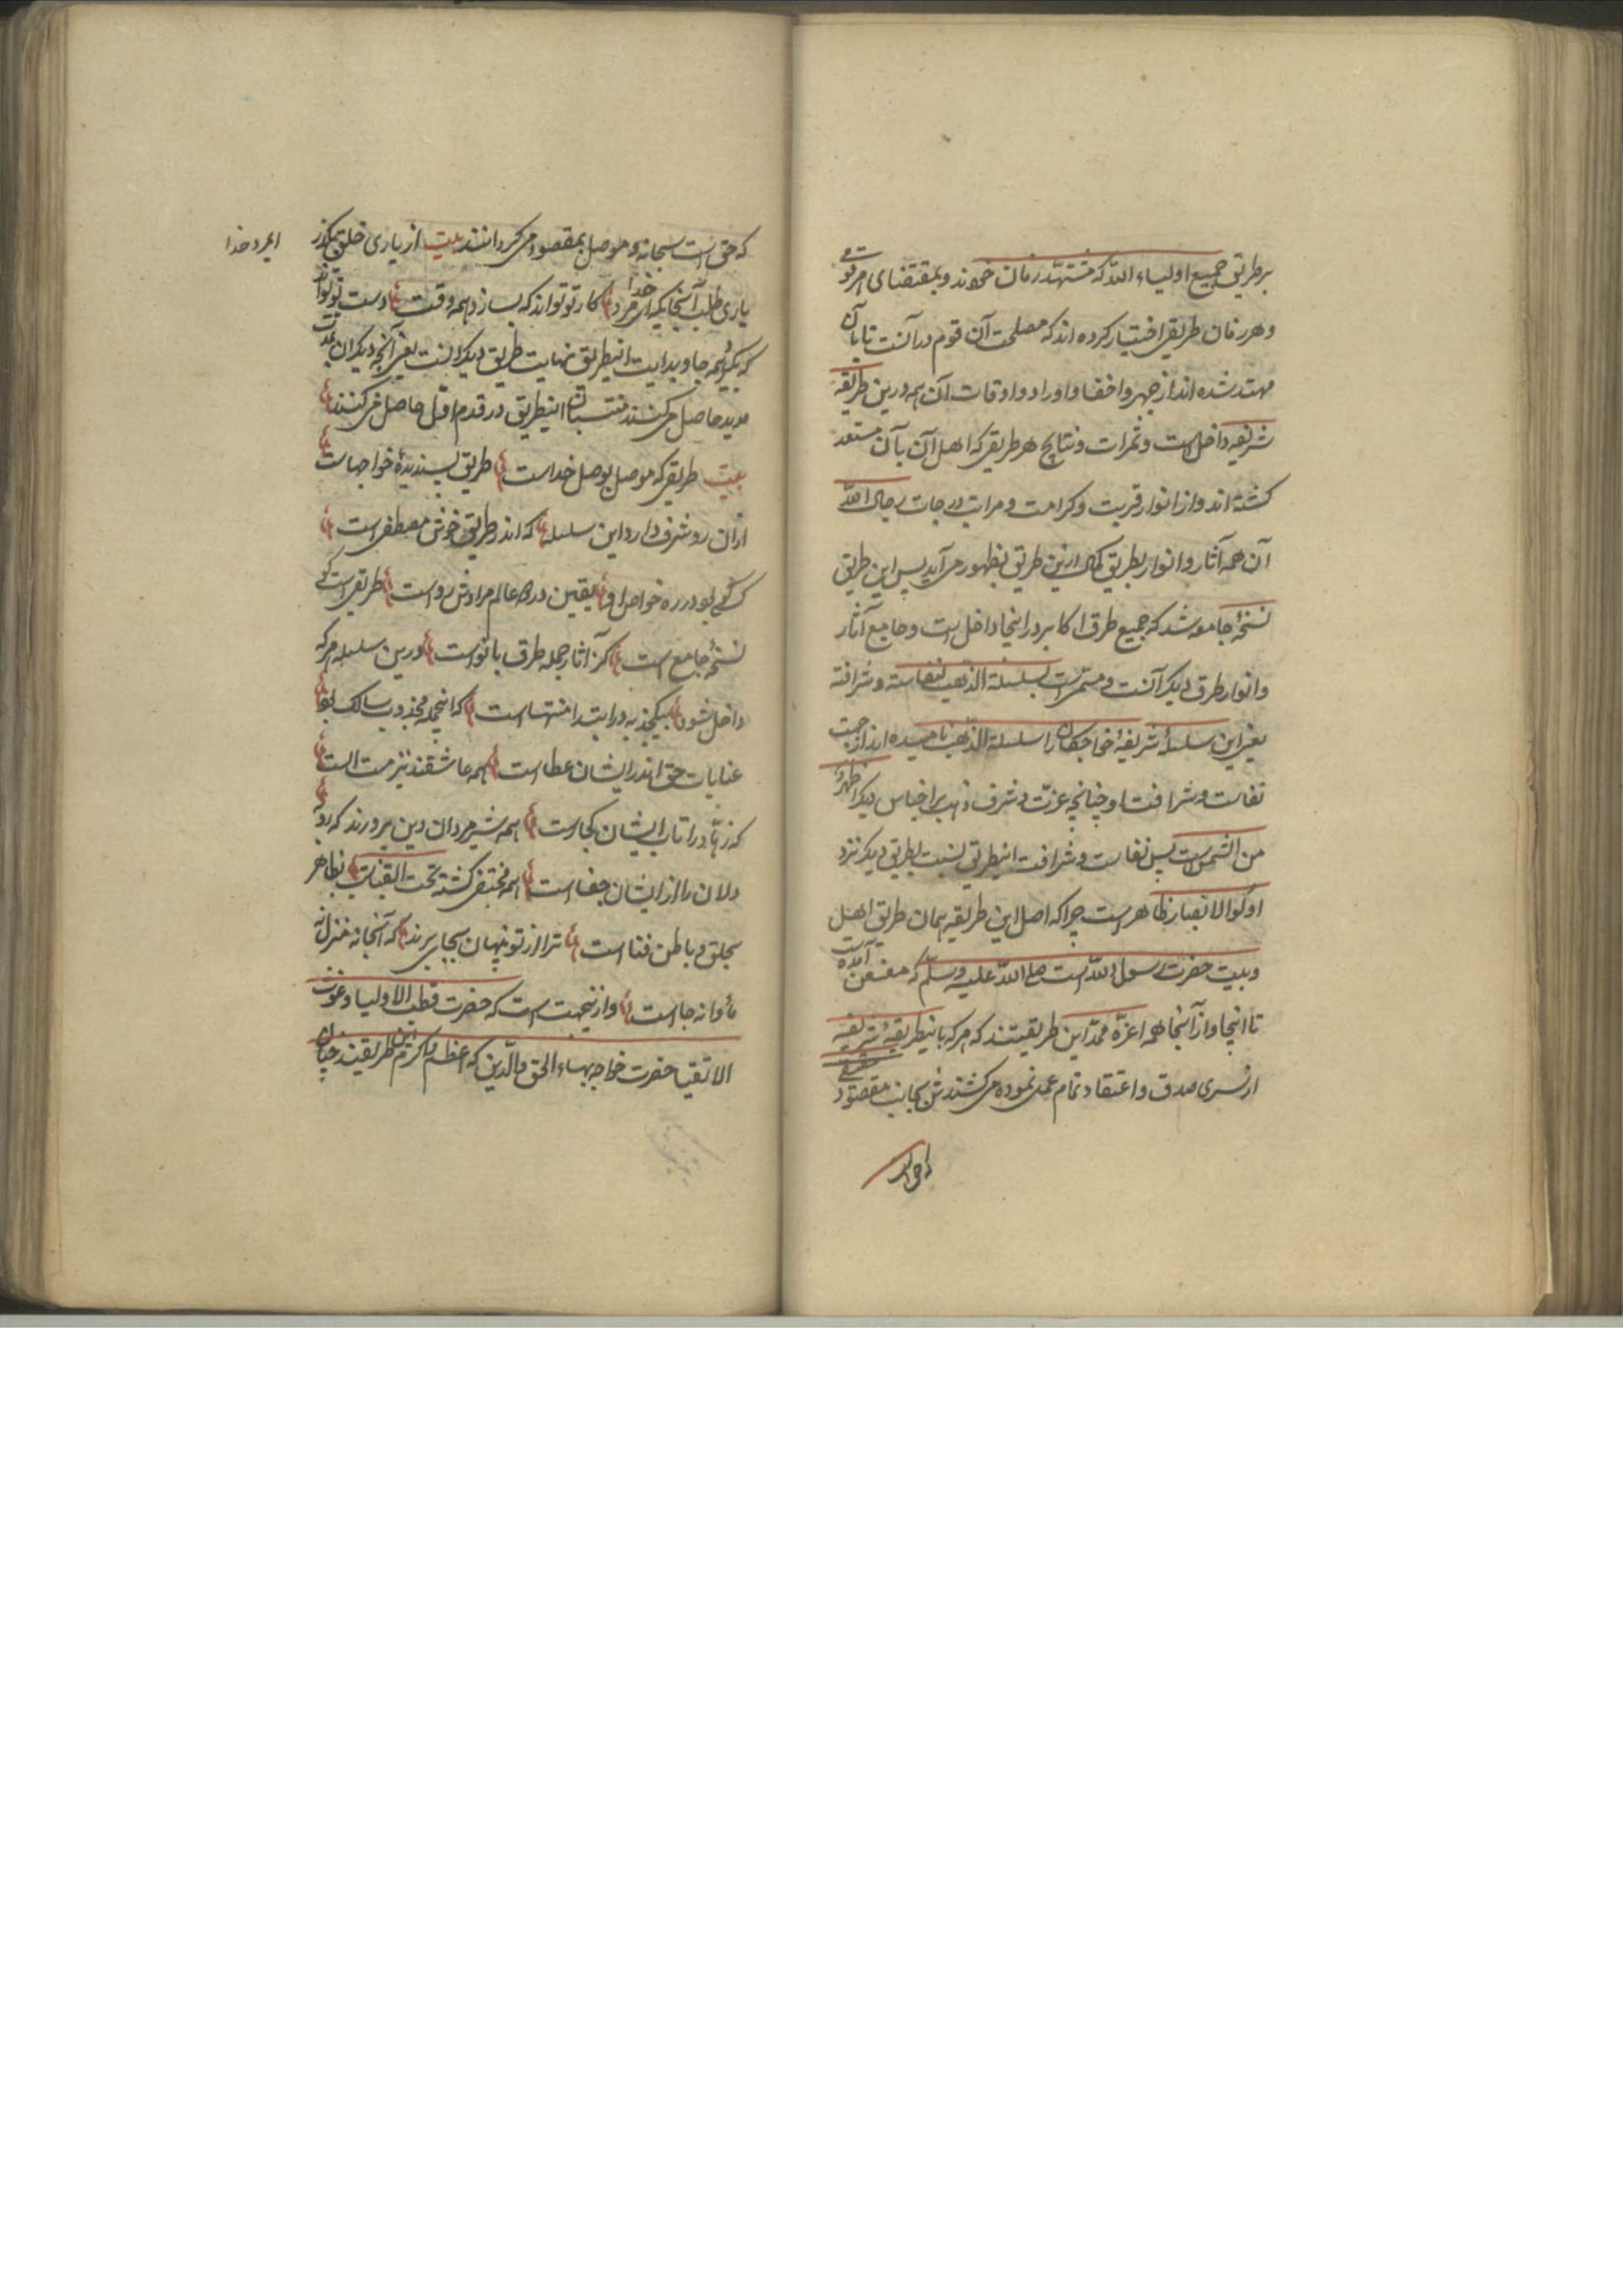 بر طریق جمیع اولیاء الله که مشتهد زمان خودند و بمقتضای امر قوت
و هر زمان طریقی اختیار کرده اند که مصلحت آن قوم در آنست تا بآن
مهتد شده اند از جهر و اخفا و اوراد و اوقات آن همه درین طریقه
شریفه داخل است و ثمرات و نتایج هر طریقی که اهل آن بآن مستعد
کشته اند و از انوار قربت و کرامت و مراتب درجات رجال الله
آن همه آثار و انوار بطریق کمال ازین طریق بظهور می آید پس این طریق
نسخهٔ جامعه شد که جمیع طرق اکابر در اینجا داخل است و جامع آثار
و انوار طرق دیکر آنست و مستمر است بسلسلة الذهب لنفاسته و شرافته
یعنی این سلسلهٔ شریفهٔ خواجکان را سلسلة الذهب نامیده اند از جهت
نفاست و شرافت او چنانچه عزت و شرف ذهب بر اجناس دیکر اظهر
من الشمس است پس نفاست و شرافت اینطریق نسبت بطریق دیکر نزد
اولوا الابصار ظاهر است چرا که اصل این طریقه همان طریق اهل
و بیت حضرت رسول الله است صلی الله علیه و سلم که معنعن آمده است
تا اینجا و از آنجا همه اعزهٔ ممد این طریقتند که هر که باینطریقهٔ شریفه
از سری صدق و اعتقاد تمام عمل نموده می کشندش بجانب مقصود حقیقی
که حق است
که حق است سبحانه و موصل بمقصود می کردانند بیت از یاری خلق بکذر
ایمرد خدا
یاری طلب آنجا که ای مرد خدا کار تو تواند که بسازد همه وقت دست تو تواند
که بکیرد همه جا و بدایت اینطریق نهایت طریق دیکرانست یعنی آنچه دیکران بمدت
مدید حاصل می کنند منتسبان اینطریق در قدم اول حاصل می کنند
بیت طریقی که موصل بوصل خداست طریق پسندیدهٔ خواجهاست
ازان رو شرف دارد این سلسله که اندر طریق خوش مصطفی است
کسی کو بود در ره خواجه او یقین در دو عالم مرادش رواست طریقی است کی
نسخهٔ جامع است کز آثار جمله طرق با نواست درین سلسله هر که
داخل شود بیکجذبه در ابتدا منتهاست که اینجمله مجذوب سالک بود
عنایات حق اندر ایشان عطاست همه عاشقند نیز مست الست
که زهاد را تاب ایشان کجاست همه شیر مردان دین پرورند که روبه
دلان را از ایشان جفاست همه مختفی کشته تحت القباب بظاهر
بخلق و باطن فناست ترا از تو پنهان بجایی برند که آنجا نه منزل نه
مأوا نه جاست و ازینجهت است که حضرت قطب الاولیا و غوث
الاتقیا حضرت خواجه بهاء الحق و الدین که اعظم و اکرم این طریقند چنان